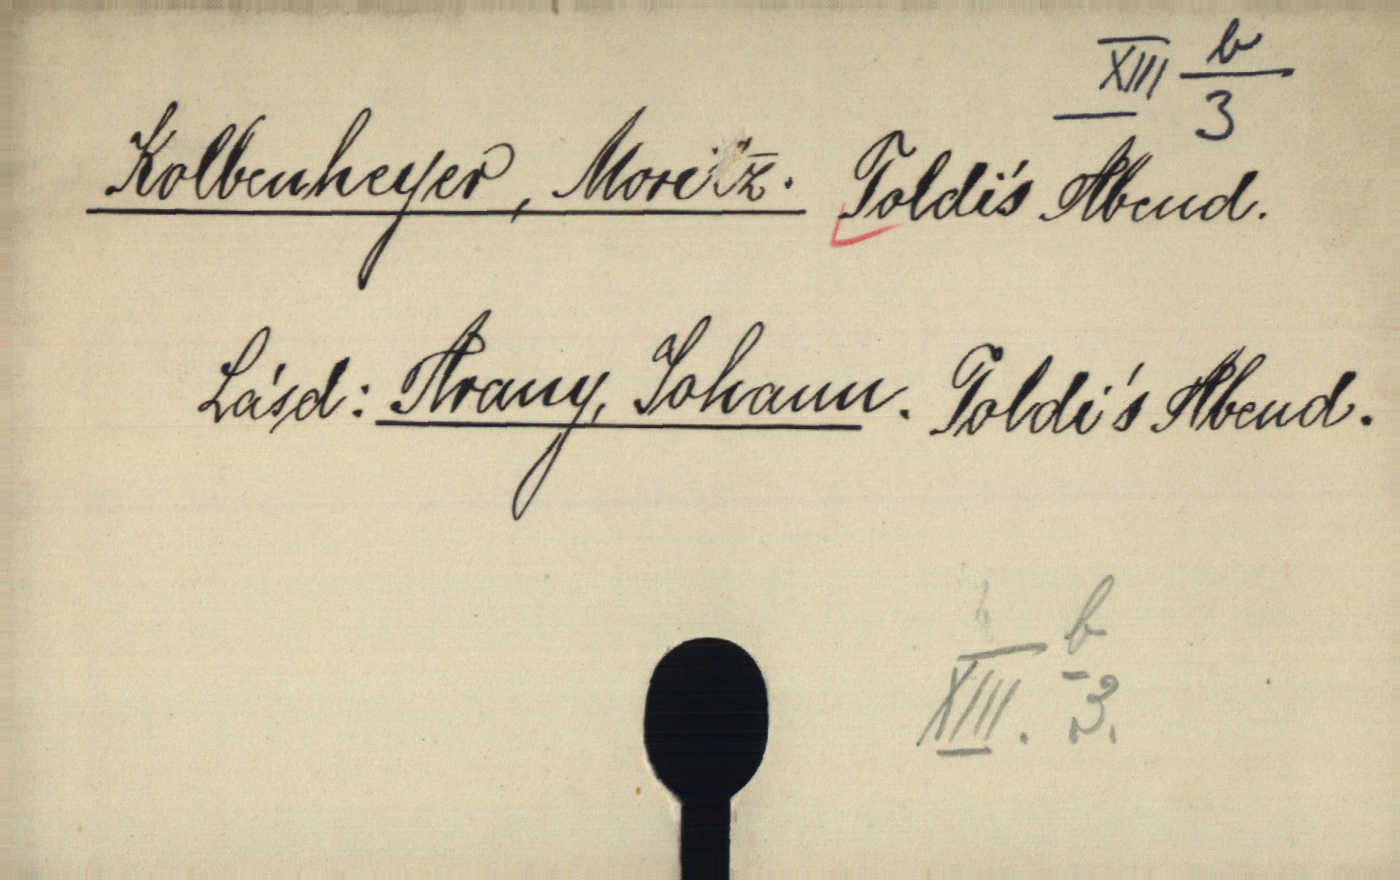 XIII b/3
Kolbenheyer, Moritz. Toldi's Abend.
Lásd: Arany, Johann. Toldi's Abend.
b
XIII. 3.